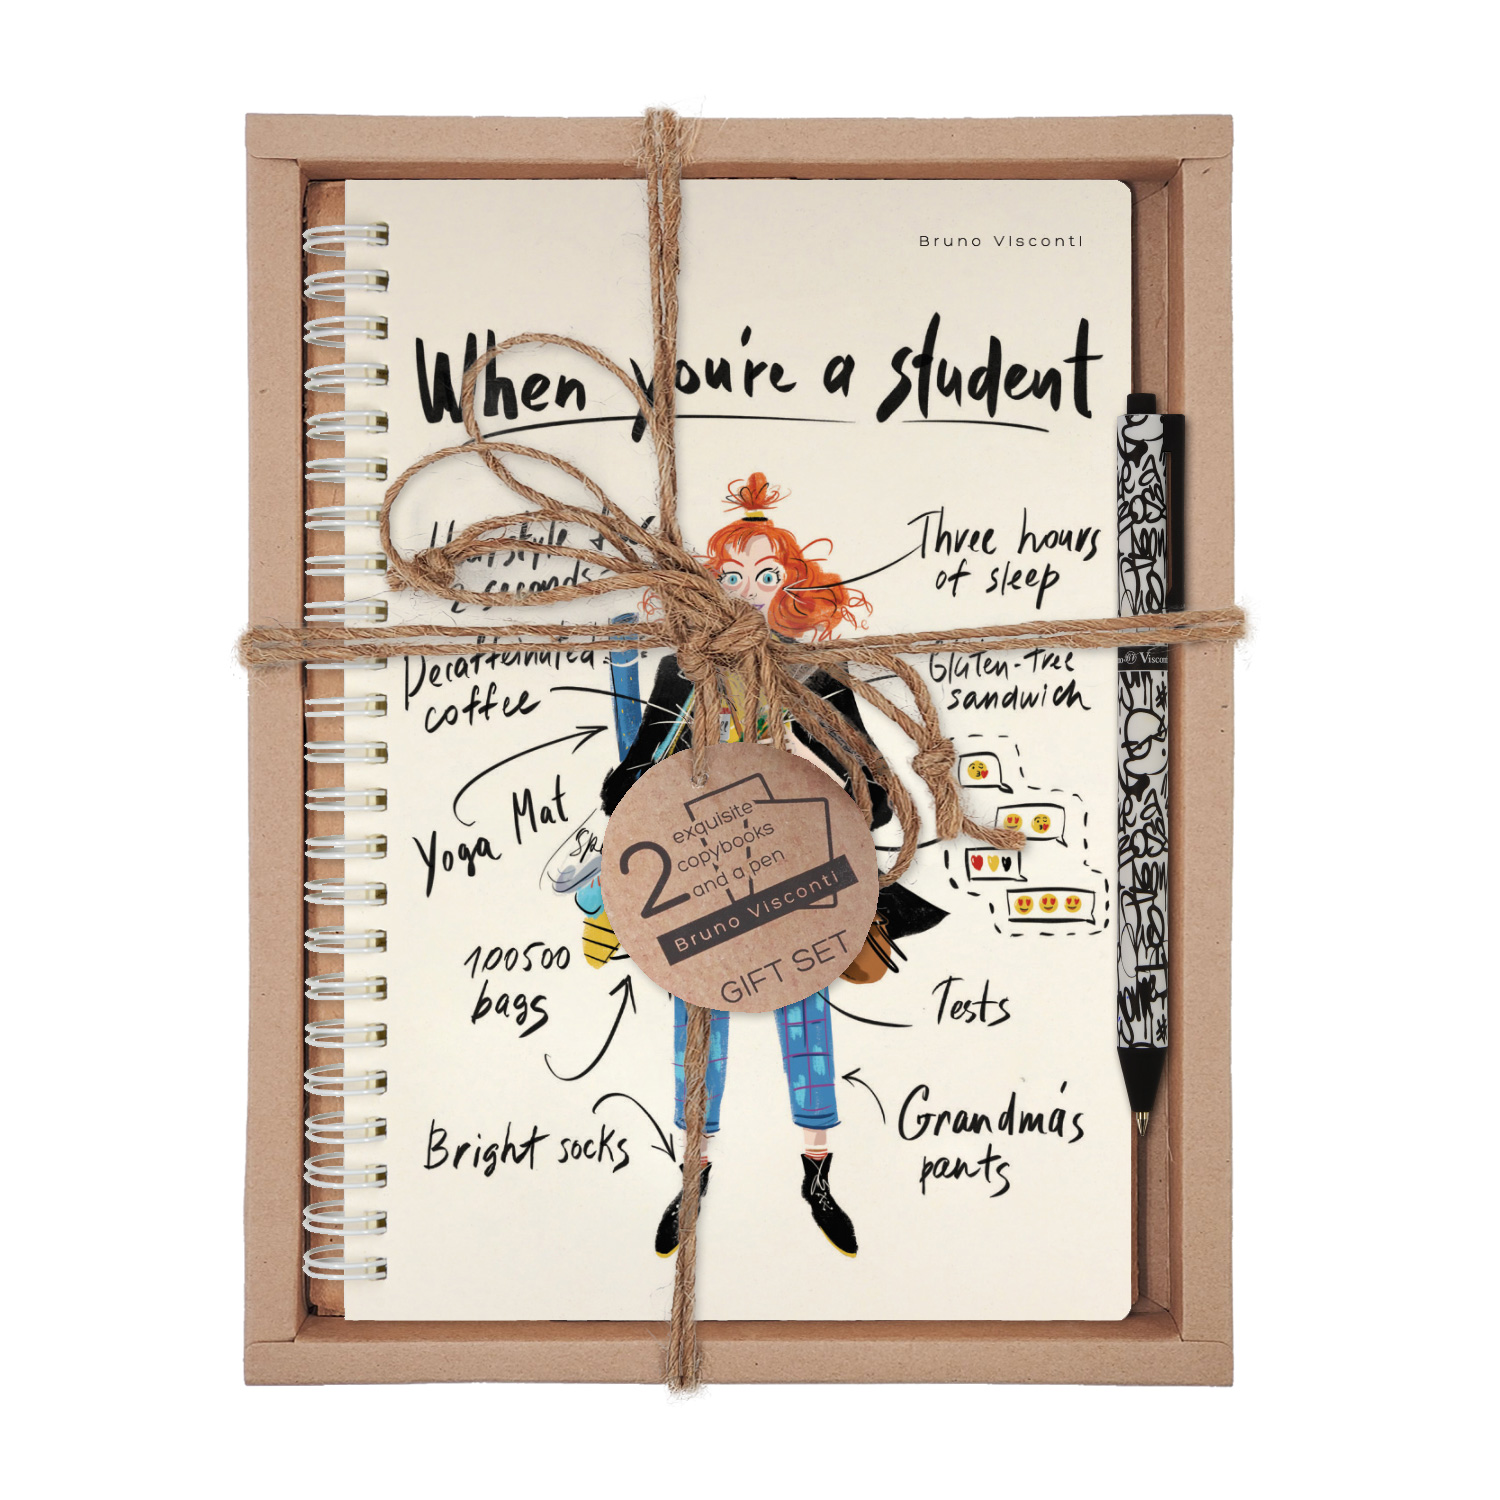 Bruno Visconti
When you're a student
Hairstyle
2 seconds
Three hours
of sleep
Decaffeinated
coffee
Gluten-free
sandwich
Yoga Mat
100500
bags
Tests
Bright socks
Grandma's
pants
2 exquisite
copybooks
and a pen
Bruno Visconti
GIFT SET
Visconti